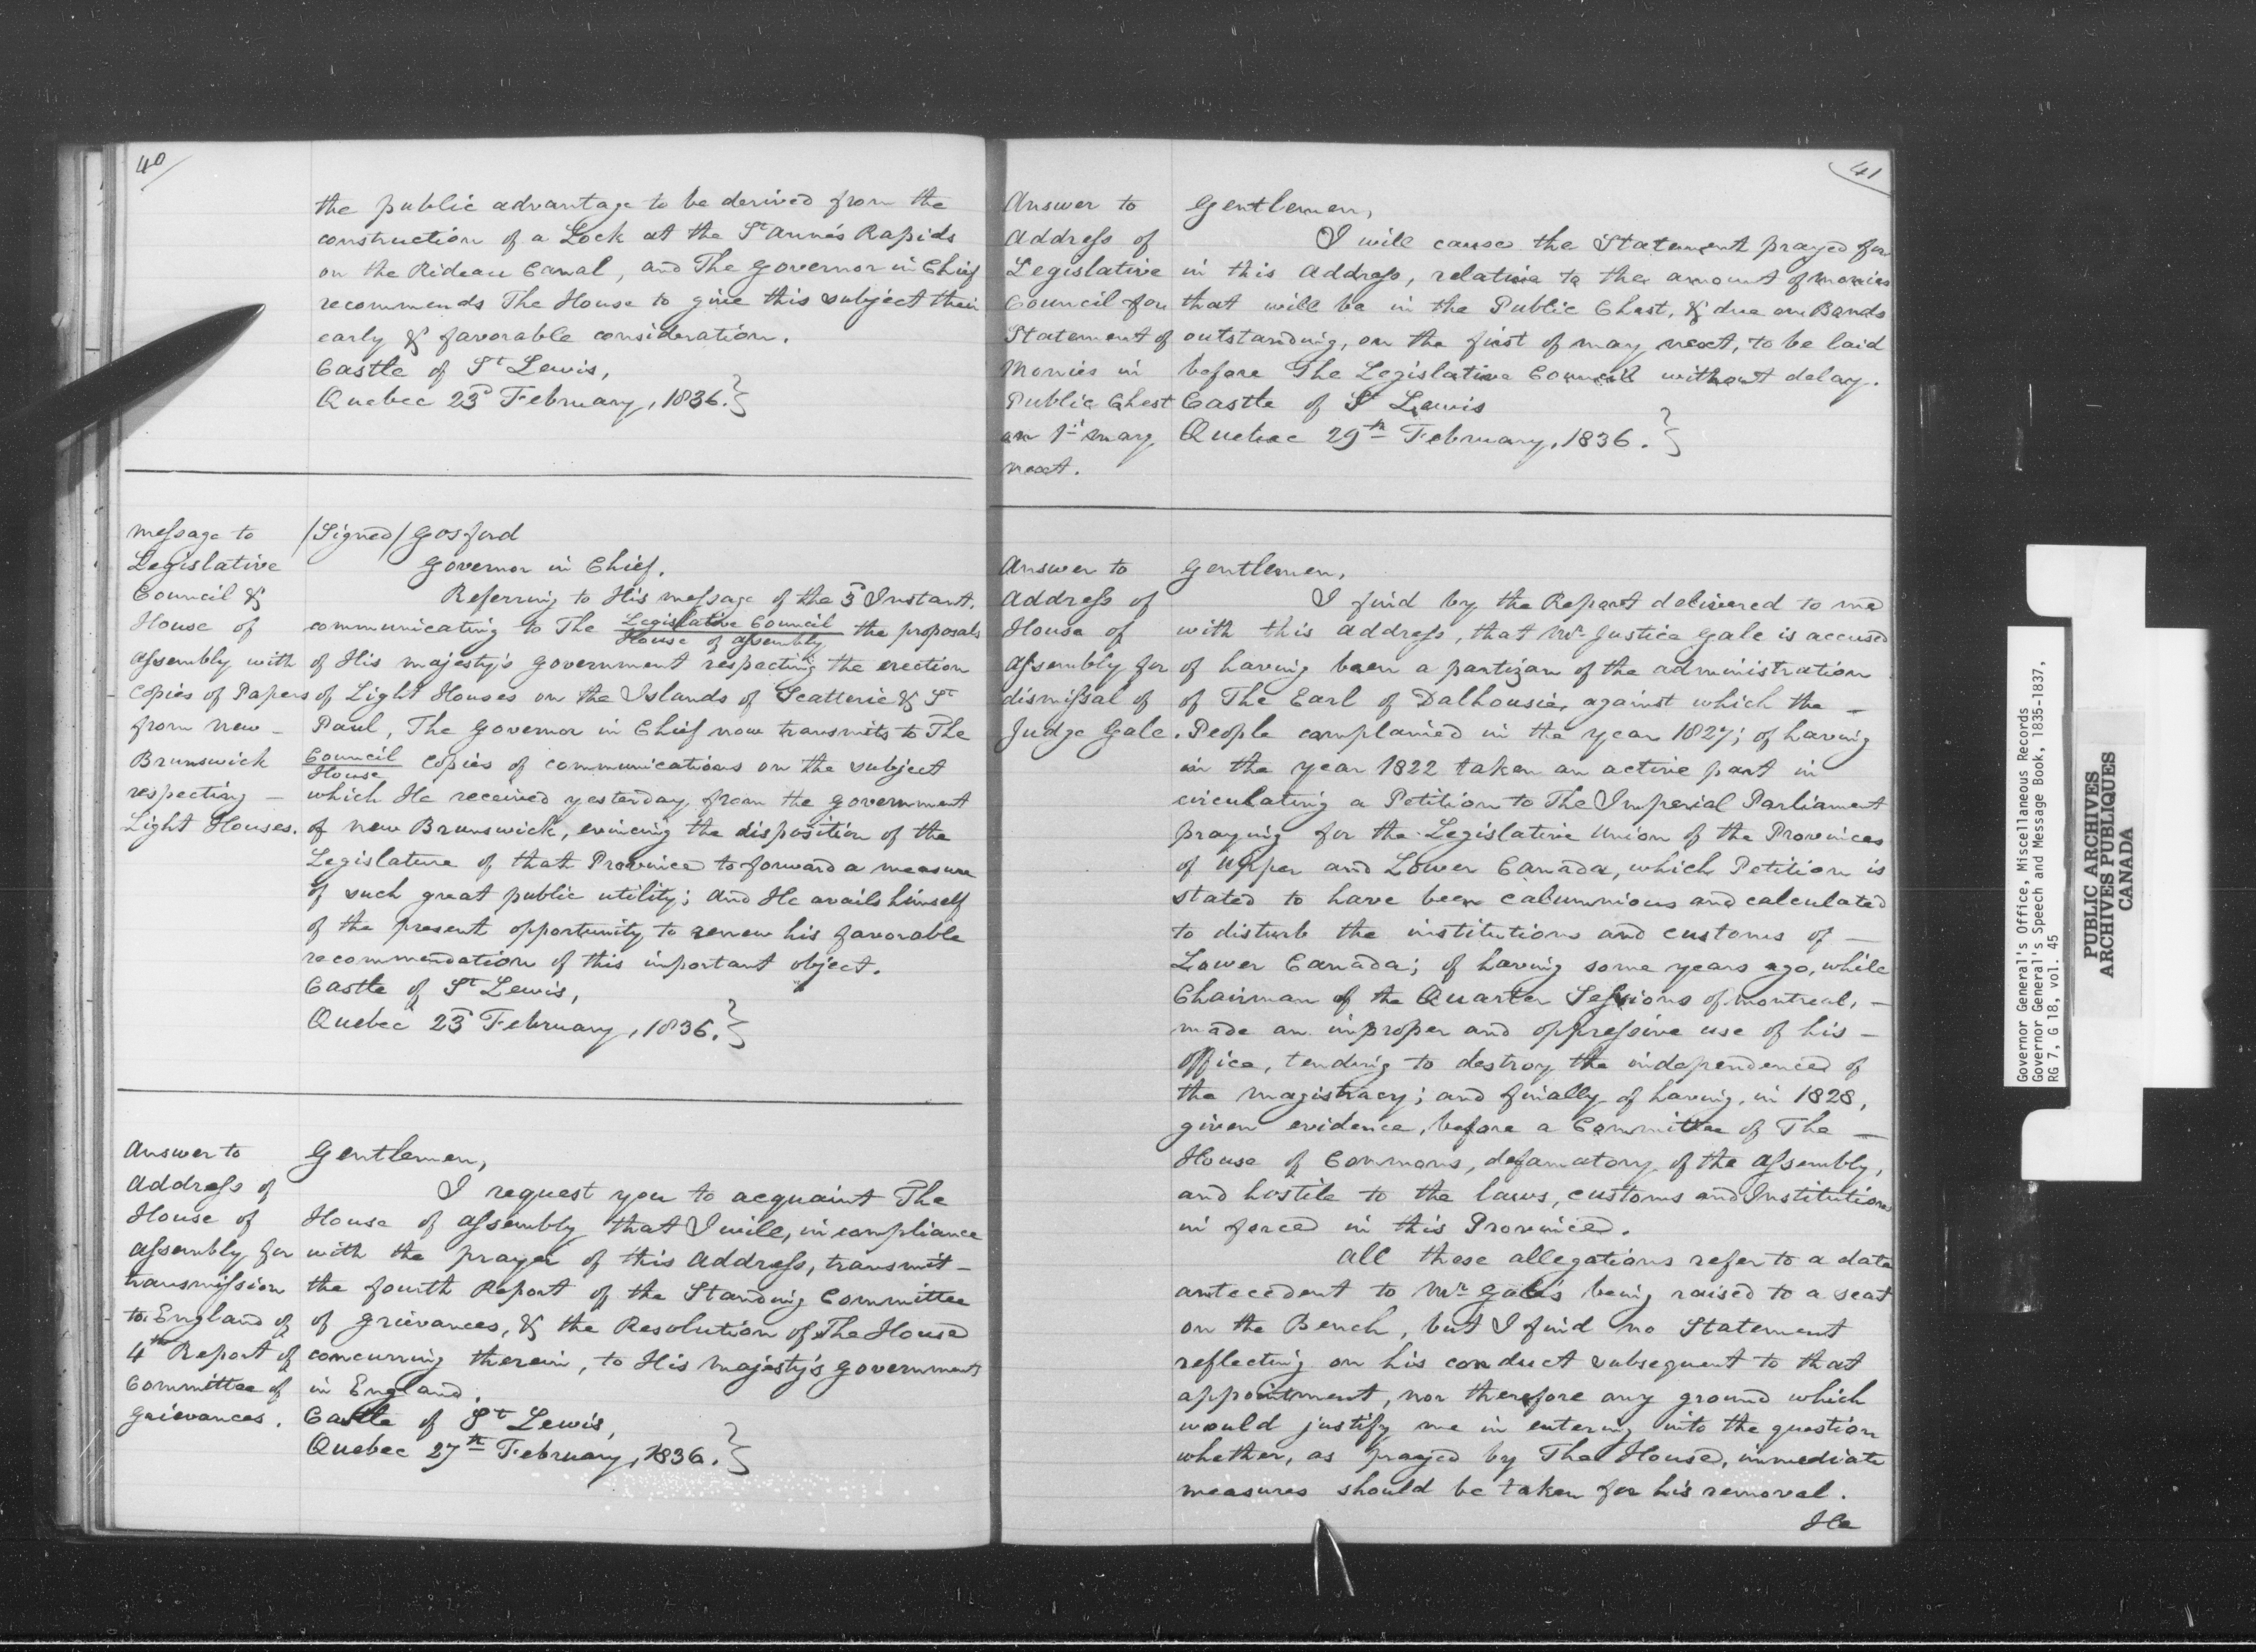 40
the public advantage to be derived from the
construction of a Lock at the St Anne's Rapids
on the Rideau Canal, and The Governor in Chief
recommends The House to give this subject their
early & favorable consideration.
Castle of St Lewis,
Quebec 23d February, 1836.}
Message to
Legislative
Council &
House of
Assembly with
Copies of Papers
from New -
Brunswick
respecting -
Light Houses.
/Signed/ Gosford
Governor in Chief.
Referring to His Message of the 3d Instant,
communicating to The Legislative Council / House of Assembly the proposals
of His Majesty's Government respecting the erection
of Light Houses on the Islands of Scatterie & St
Paul, The Governor in Chief now transmits to The
Council / House Copies of communications on the subject
which He received yesterday from the Government
of New Brunswick, evincing the disposition of the
Legislature of that Province to forward a measure
of such great public utility; and He avails himself
of the present opportunity to renew his favorable
recommendation of this important object.
Castle of St Lewis,
Quebec 23d February, 1836.}
Answer to
Address of
House of
Assembly for
transmission
to England of
4th Report of
Committee of
Grievances.
Gentlemen,
I request you to acquaint The
House of Assembly that I will, in compliance
with the prayer of this Address, transmit -
the fourth Report of the Standing Committee
of Grievances, & the Resolution of The House
concurring therein, to His Majesty's Government
in England.
Castle of St Lewis,
Quebec 27th February, 1836.}
41
Answer to
Address of
Legislative
Council for
Statement of
Monies in
Public Chest
on 1st May
next.
Gentlemen,
I will cause the Statement prayed for
in this Address, relative to the amount of monies
that will be in the Public Chest, & due on Bonds
outstanding, on the first of May next, to be laid
before The Legislative Council without delay.
Castle of St Lewis
Quebec 29th February, 1836.}
Answer to
Address of
House of
Assembly for
dismissal of
Judge Gale.
Gentlemen,
I find by the Report delivered to me
with this Address, that Mr Justice Gale is accused
of having been a partizan of the administration
of The Earl of Dalhousie, against which the -
People complained in the year 1827; of having
in the year 1822 taken an active part in
circulating a Petition to The Imperial Parliament
praying for the Legislative Union of the Provinces
of Upper and Lower Canada, which Petition is
stated to have been calumnious and calculated
to disturb the institutions and customs of -
Lower Canada; of having some years ago, while
Chairman of the Quarter Sessions of Montreal, -
made an improper and oppressive use of his -
office, tending to destroy the independence of
the Magistracy; and finally of having, in 1828,
given evidence, before a Committee of The -
House of Commons, defamatory of the Assembly,
and hostile to the laws, customs and Institutions
in force in this Province.
All these allegations refer to a date
antecedent to Mr Gale's being raised to a seat
on the Bench, but I find no Statement
reflecting on his conduct subsequent to that
appointment, nor therefore any ground which
would justify me in entering into the question
whether, as prayed by The House, immediate
measures should be taken for his removal.
He
Governor General's Office, Miscellaneous Records
Governor General's Speech and Message Book, 1835-1837,
RG 7, G 18, vol. 45
PUBLIC ARCHIVES
ARCHIVES PUBLIQUES
CANADA